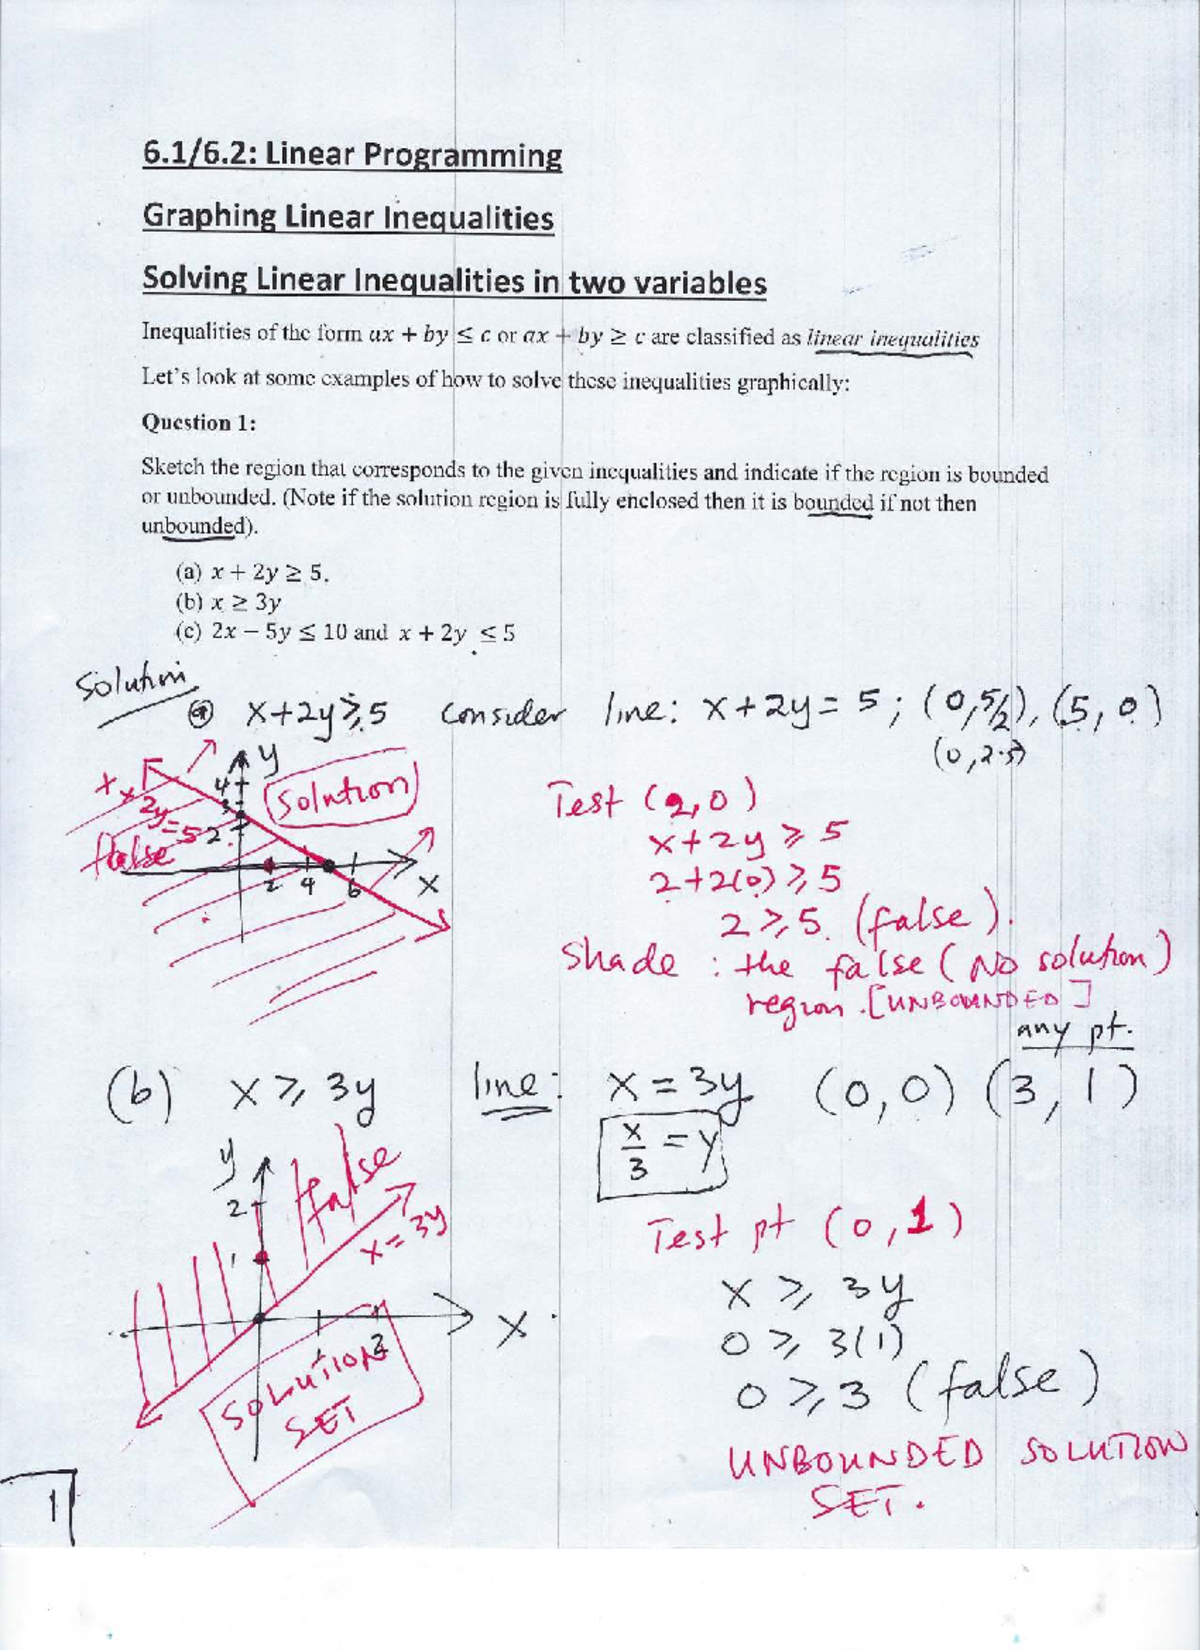 6.1/6.2: Linear Programming
Graphing Linear Inequalities
Solving Linear Inequalities in two variables
Inequalities of the form ax + by ≤ c or ax + by ≥ c are classified as linear inequalities
Let's look at some examples of how to solve these inequalities graphically:
Question 1:
Sketch the region that corresponds to the given inequalities and indicate if the region is bounded
or unbounded. (Note if the solution region is fully enclosed then it is bounded if not then
unbounded).
(a) x + 2y ≥ 5.
(b) x ≥ 3y
(c) 2x − 5y ≤ 10 and x + 2y ≤ 5
Solution
(a) x+2y ≥ 5 consider line: x+2y = 5; (0,5/2), (5,0)
(0,2.5)
y
4
3
2
Solution
x+2y=5
false
2 4 6
x
Test (2,0)
x+2y ≥ 5
2+2(0) ≥ 5
2 ≥ 5. (false).
Shade : the false (NO solution)
region. [UNBOUNDED]
any pt.
(b) x ≥ 3y line: x = 3y (0,0) (3,1)
x/3 = y
y
2
1
false
x = 3y
x
3
SOLUTION
SET
Test pt (0,1)
x ≥ 3y
0 ≥ 3(1)
0 ≥ 3 (false)
UNBOUNDED SOLUTION
SET.
1